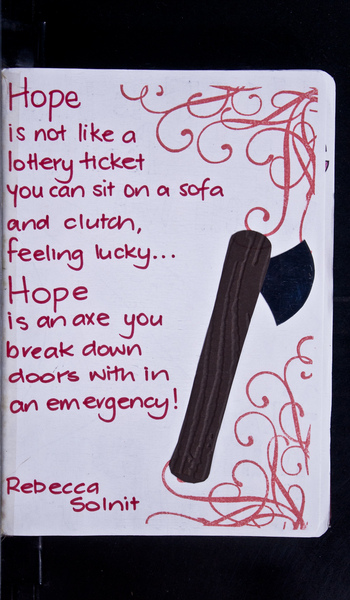 Hope
is not like a
lottery ticket
you can sit on a sofa
and clutch,
feeling lucky...
Hope
is an axe you
break down
doors with in
an emergency!
Rebecca
Solnit